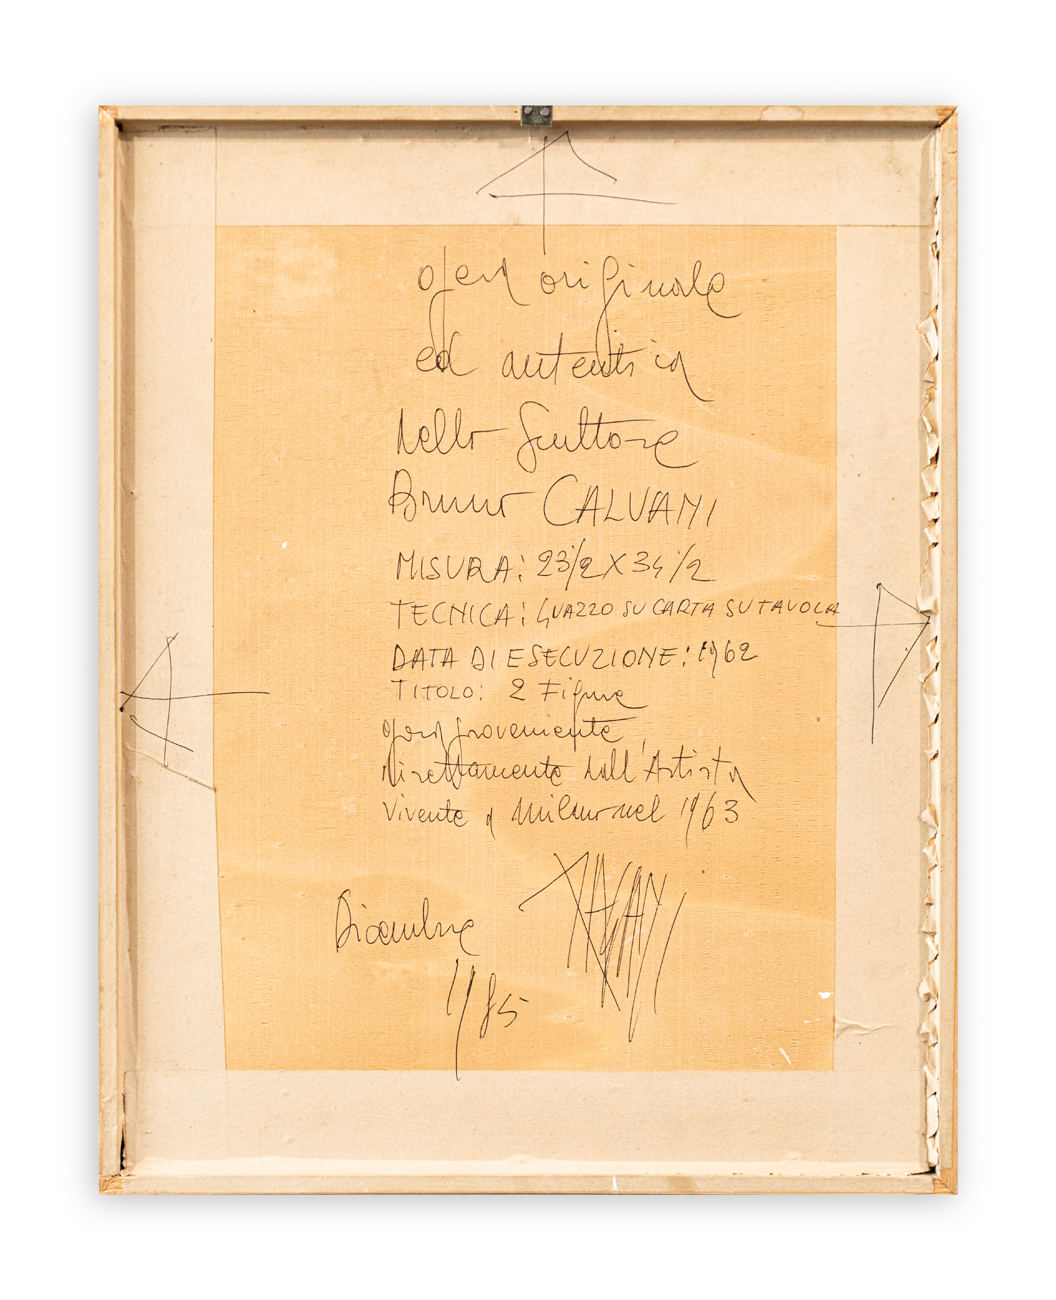 opera originale
ed autentica
dello Scultore
Bruno CALVANI
MISURA: 23 1/2 X 34 1/2
TECNICA: GUAZZO SU CARTA SU TAVOLA
DATA DI ESECUZIONE: 1962
TITOLO: 2 Figure
opera proveniente
direttamente dall'Artista
vivente a Milano nel 1963
Dicembre
1985